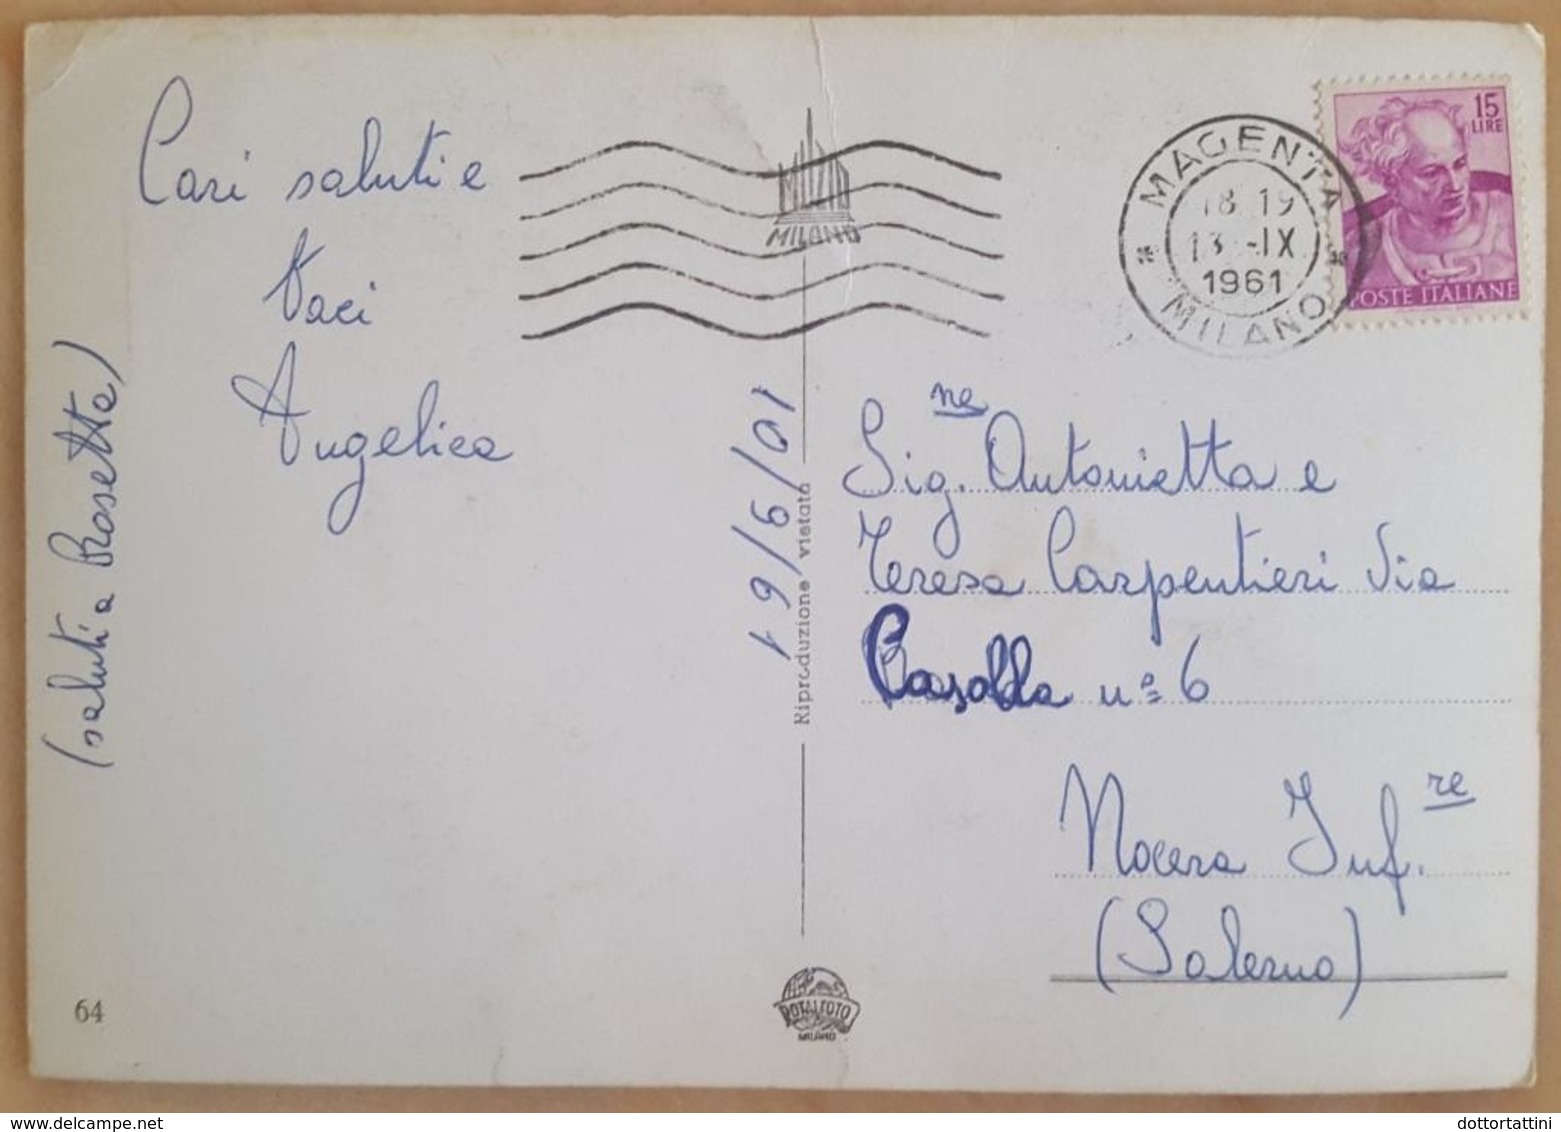 Cari saluti e
baci
Angelica
(saluti a Rosetta)
10/9/61
Riproduzione vietata
64
ROTALFOTO
MILANO
MILANO
MAGENTA
18 19
13 -IX
1961
MILANO
15
LIRE
POSTE ITALIANE
Sig.ne Antonietta e
Teresa Carpentieri Via
Casolla nº 6
Nocera Inf.re
(Salerno)
dottortattini